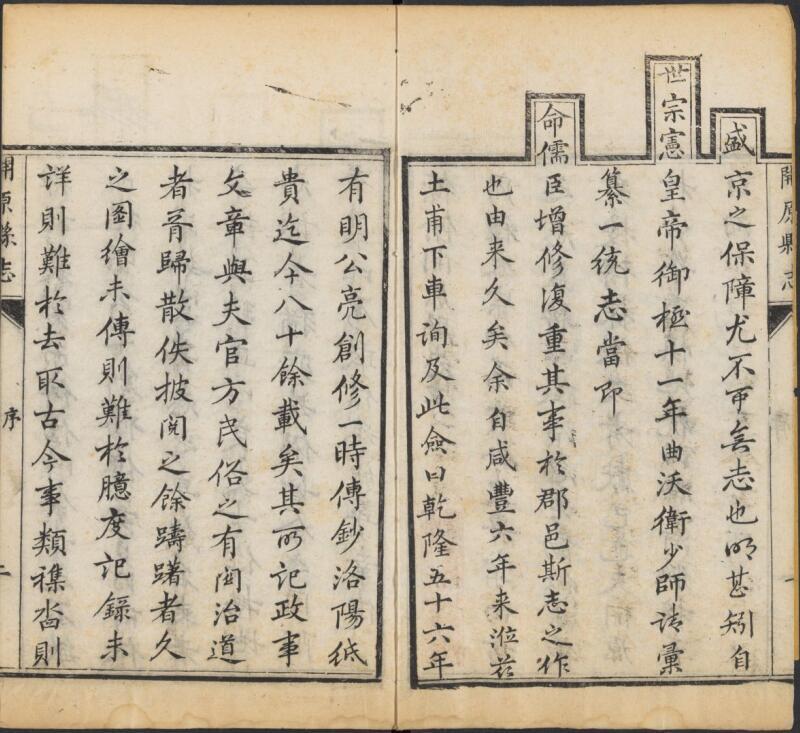 開原縣志
盛京之保障尤不可無志也明甚矧自
世宗憲皇帝御極十一年曲沃衛少師請彙
纂一統志當即
命儒臣增修復重其事於郡邑斯志之作
也由來久矣余自咸豐六年來涖茲
土甫下車詢及此僉曰乾隆五十六年
有明公亮創修一時傳鈔洛陽紙
貴迄今八十餘載矣其所記政事
文章與夫官方民俗之有関治道
者胥歸散佚披閱之餘躊躇者久
之圖繪未傳則難於臆度記錄未
詳則難於去取古今事類襍沓則
開原縣志
序
二